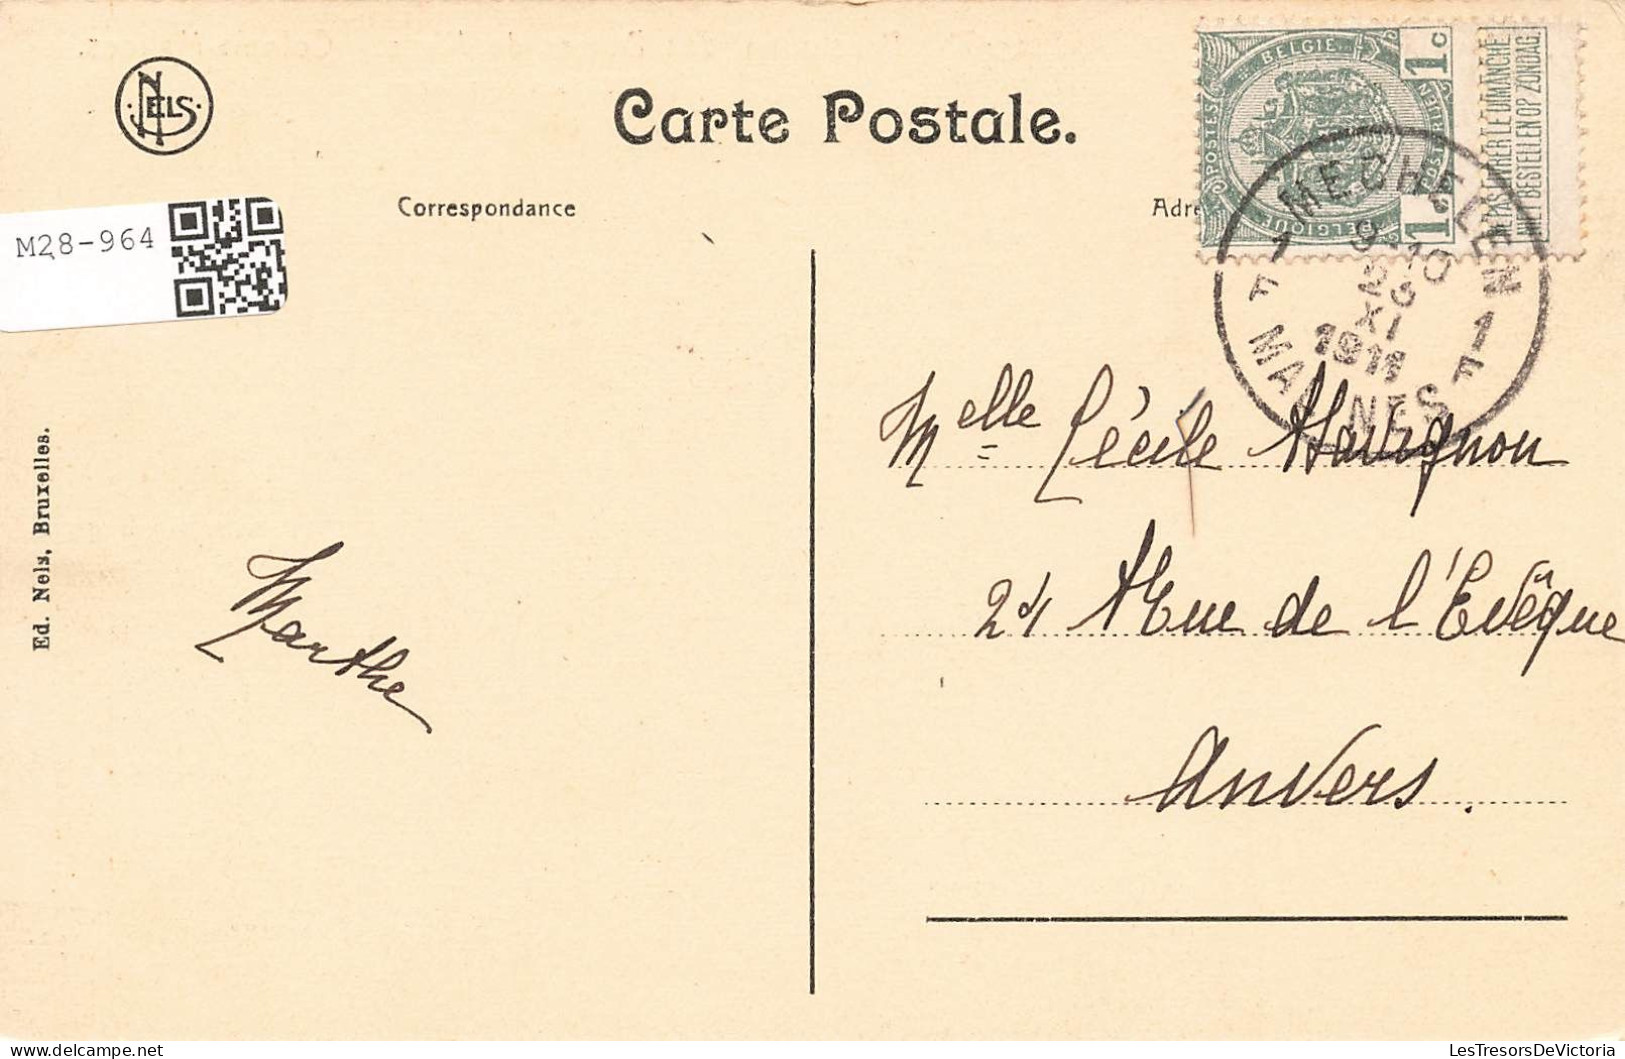 NELS
Carte Postale.
Correspondance
Adre
BELGIE
POSTES
BELGIQUE
1 c
1
NE PAS LIVRER LE DIMANCHE
NIET BESTELLEN OP ZONDAG
MECHELEN
1 F
9-10
XI
1911
1 F
MALINES
M28-964
Ed. Nels, Bruxelles.
Marthe
Melle Cécile
24 Rue de l'Evêque
Anvers.
LesTresorsDeVictoria
delcampe.net